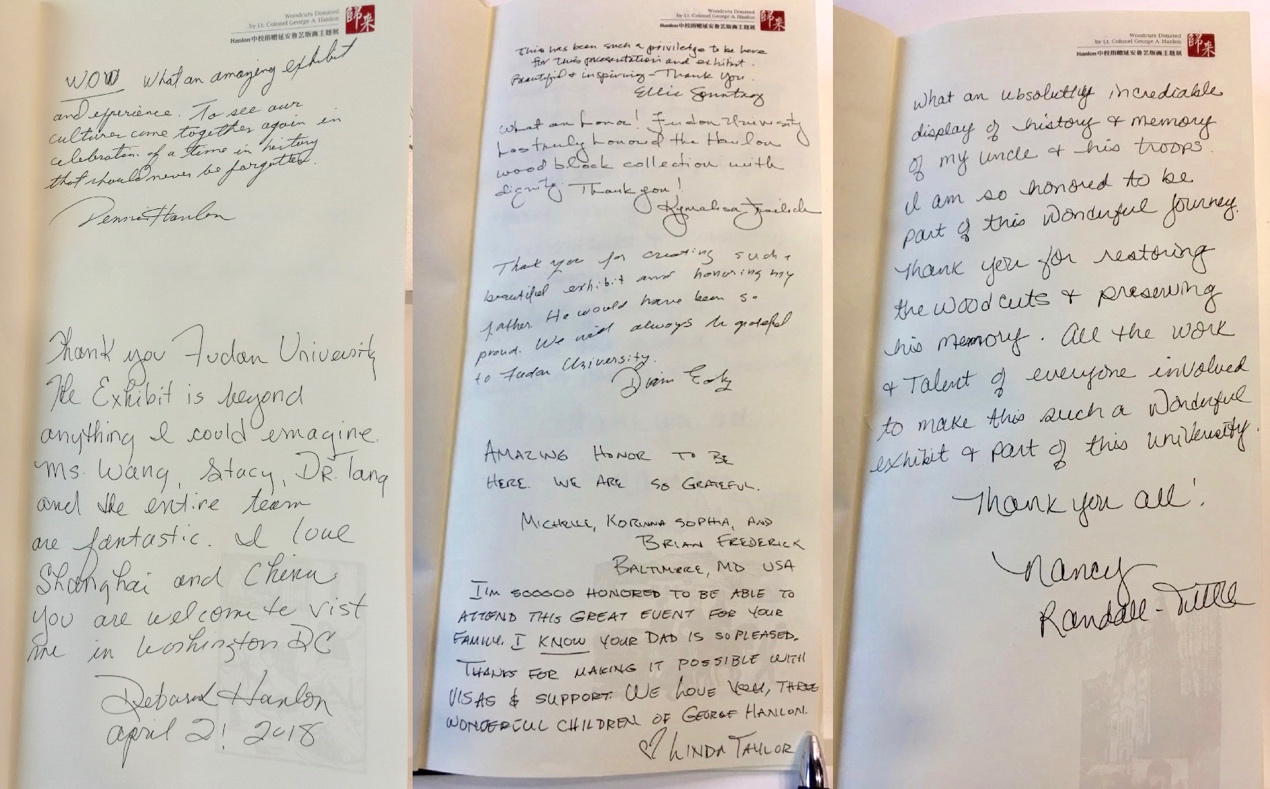 Woodcuts Donated
by Lt. Colonel George A. Hanlon
Hanlon中校捐赠延安鲁艺版画主题展
歸来
WOW What an amazing exhibit
and experience. To see our
cultures come together again in
celebration of a time in history
that should never be forgotten.
Dennis Hanlon
Thank you Fudan University
The Exhibit is beyond
anything I could emagine.
Ms. Wang, Stacy, DR. Tang
and the entire team
are fantastic. I love
Shanghai and China
you are welcome to vist
me in Washington DC
Deborah Hanlon
april 21 2018
Woodcuts Donated
by Lt. Colonel George A. Hanlon
Hanlon中校捐赠延安鲁艺版画主题展
歸来
This has been such a priviledge to be here
for this presentation and exhibit.
Beautiful & inspiring - Thank you.
Ellie Sonntag
What an honor! Fudan University
has truly honored the Hanlon
wood block collection with
dignity. Thank you!
Thank you for creating such a
beautiful exhibit and honoring my
father. He would have been so
proud. We will always be grateful
to Fudan University.
AMAZING HONOR TO BE
HERE. WE ARE SO GRATEFUL.
MICHELLE, KORINNA SOPHIA, AND
BRIAN FREDERICK
BALTIMORE, MD USA
I'M SOOOOO HONORED TO BE ABLE TO
ATTEND THIS GREAT EVENT FOR YOUR
FAMILY. I KNOW YOUR DAD IS SO PLEASED.
THANKS FOR MAKING IT POSSIBLE WITH
VISAS & SUPPORT. WE LOVE YOU, THREE
WONDERFUL CHILDREN OF GEORGE HANLON.
♡ LINDA TAYLOR
Woodcuts Donated
by Lt. Colonel George A. Hanlon
Hanlon中校捐赠延安鲁艺版画主题展
歸来
What an absolutly increadiable
display of history & memory
of my uncle & his troops.
I am so honored to be
part of this wonderful journey.
Thank you for restoring
the woodcuts & preserving
his memory. All the work
& Talent of everyone involved
to make this such a wonderful
exhibit & part of this university.
Thank you all!
Nancy
Randall-Tuttle